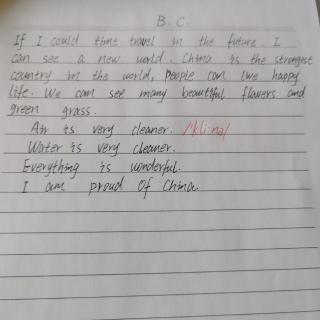 B. C.
If I could time travel in the future. I
can see a new world. China is the strongest
country in the world, people can live happy
life. We can see many beautiful flowers and
green grass.
Air is very cleaner. /kli:na/
Water is very cleaner.
Everything is wonderful.
I am proud of China.